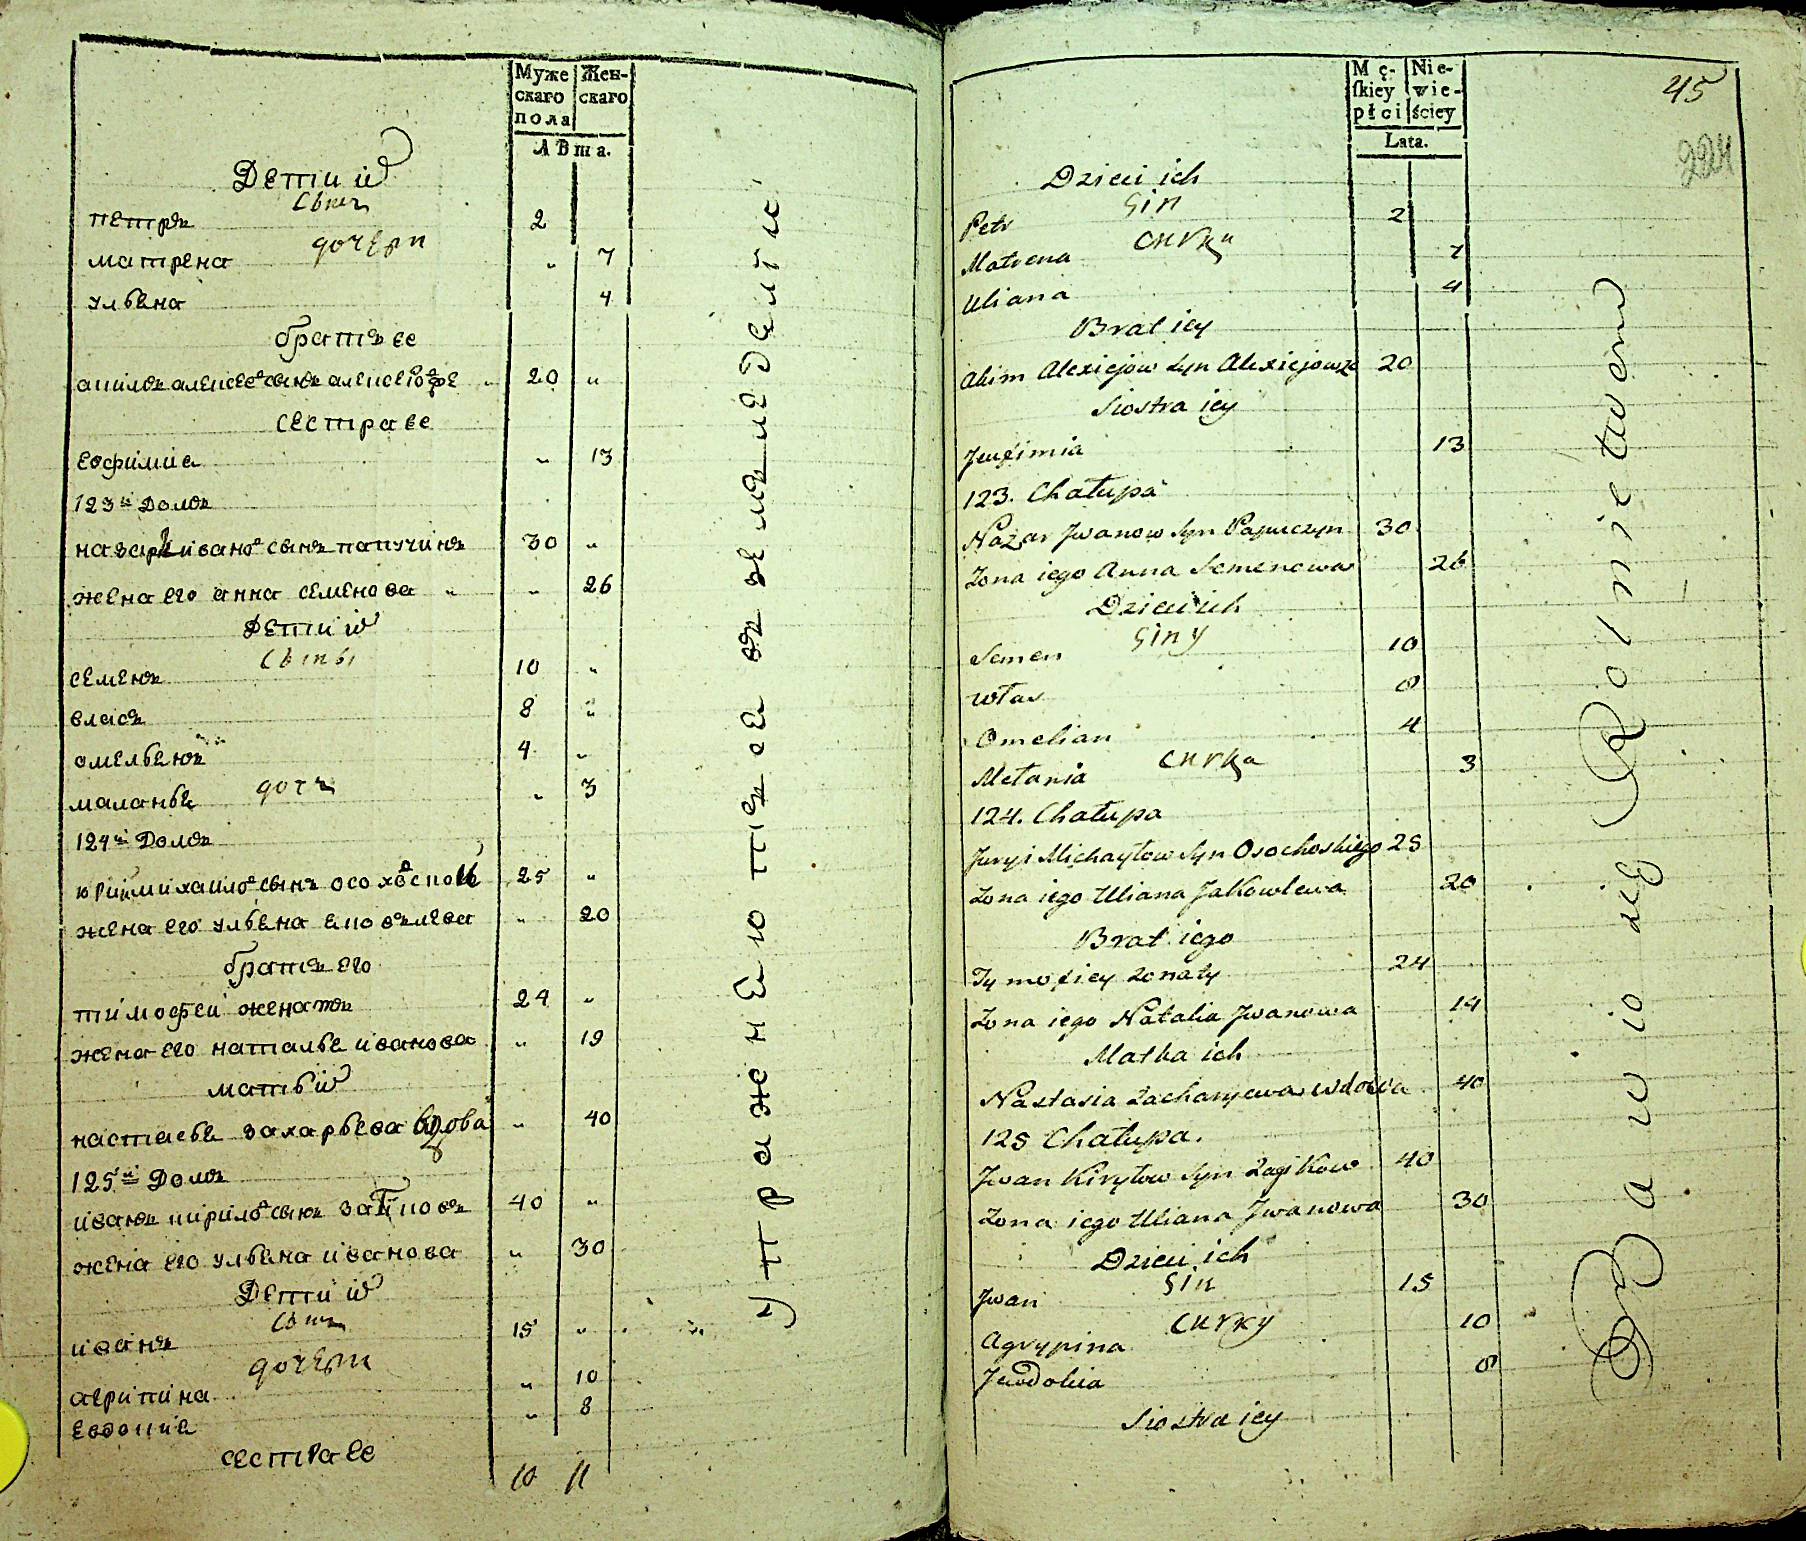 Муже Жен-
скаго скаго
пола
Лѣта.
Дети и͠
Сынъ
петръ 2
дочери
матрена „ 7
ульѣна 4
братъ ее
акимъ алексее͠ сынъ 20 „
сестра ее
еофимиѣ „ 13
123й Домъ
назаръ ивано͠ сынъ папучинъ 30 „
жена его анна семенова „ „ 26
Дети и͠
Сыны
семенъ 10 „
власъ 8 „
омельѣнъ 4 „
дочь
маланьѣ „ 3
124й Домъ
юрии михаило͠ сынъ 25 „
жена его ульѣна ѣковлева „ 20
братъ его
тимофеи женатъ 24 „
жена его натальѣ иванова „ 19
мать и͠
настасьѣ захарьева вдова „ 40
125й Домъ
иванъ кирило͠ сынъ 40 „
жена его ульѣна иванова „ 30
Дети и͠
Сынъ
иванъ 15 „
дочери
агрипина „ 10
евдокиѣ „ 8
сестра ее
10 11
Упражнѣютцѣсѣ въ земледелие
Mę- Nie-
skiey wie-
płci ściey
Lata.
45
224
Dzieci ich
Sin
Petr 2
Curki
Matrena 7
Uliana 4
Brat iey
Akim Alexiejow Syn Alexiejowze 20
Siostra iey
Jeufimia 13
123. Chałupa
Nazar Jwanow Syn Papuczyn 30
Zona iego Anna Semenowa 26
Dzieci ich
Siny
Semen 10
Włas 8
Omelian 4
Curka
Mełania 3
124. Chałupa
Juryi Michayłow Syn Osochoskiego 25
Zona iego Uliana Jakowlewa 20
Brat iego
Tymofiey zonaty 24
Zona iego Natalia Jwanowa 19
Matka ich
Nastasia Zacharyewa wdowa 40
125 Chałupa.
Jwan Kiryłow Syn Zagikow 40
Zona iego Uliana Jwanowa 30
Dzieci ich
Sin
Jwan 15
Curky
Agrypina 10
Jewdokia 8
Siostra iey
Bawio się Rolnictwem